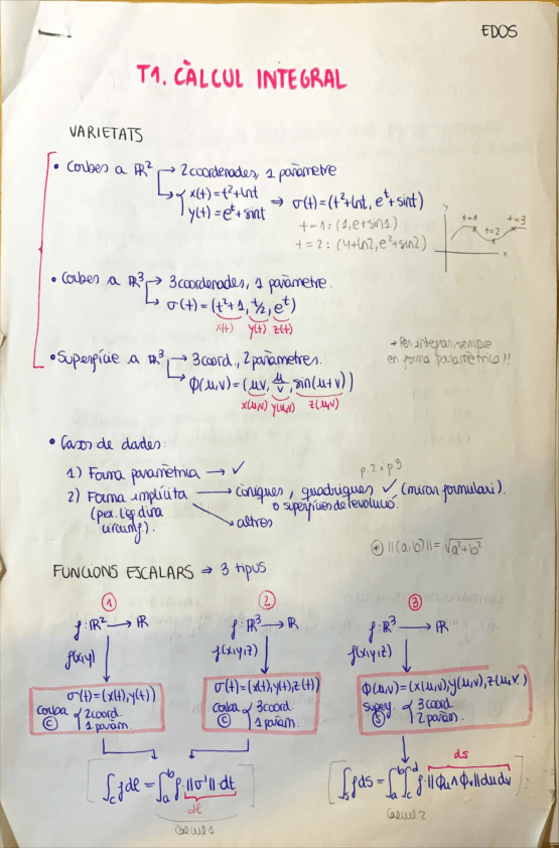 EDOS
T1. CÀLCUL INTEGRAL
VARIETATS
• Corbes a ℝ² → 2 coordenades, 1 paràmetre
↳ { x(t) = t² + lnt
y(t) = e^t + sint ⇒ σ(t) = (t² + lnt, e^t + sint)
t = 1 : (1, e + sin1)
t = 2 : (4 + ln2, e² + sin2)
y
t=1
t=2
t=3
x
• Corbes a ℝ³ → 3 coordenades, 1 paràmetre.
↳ σ(t) = (t² + 1, t/2, e^t)
x(t) y(t) z(t)
• Superfície a ℝ³ → 3 coord., 2 paràmetres.
↳ ϕ(u,v) = (uv, u/v, sin(u+v))
x(u,v) y(u,v) z(u,v)
* Per integrar, sempre
en forma paramètrica!!
• Casos de dades:
1) Forma paramètrica → ✓
p.2 i p3
2) Forma implícita → còniques, quàdriques ✓ (mirar formulari).
(p.ex. l'eq. d'una
circumf.).
o superfícies de revolució.
→ altres
* ||(a,b)|| = √a²+b²
FUNCIONS ESCALARS ⇒ 3 tipus
① ② ③
f : ℝ² → ℝ
f(x,y)
f : ℝ³ → ℝ
f(x,y,z)
f : ℝ³ → ℝ
f(x,y,z)
σ(t) = (x(t), y(t))
corba { 2 coord.
Ⓒ 1 paràm.
σ(t) = (x(t), y(t), z(t))
corba { 3 coord.
Ⓒ 1 paràm.
ϕ(u,v) = (x(u,v), y(u,v), z(u,v)
superf. { 3 coord.
Ⓢ 2 paràm.
∫c f dl = ∫a^b f · ||σ'|| · dt
dl
càlcul 1
ds
∫s f ds = ∫a^b ∫c^d f · ||ϕu ∧ ϕv|| du dv
càlcul 2